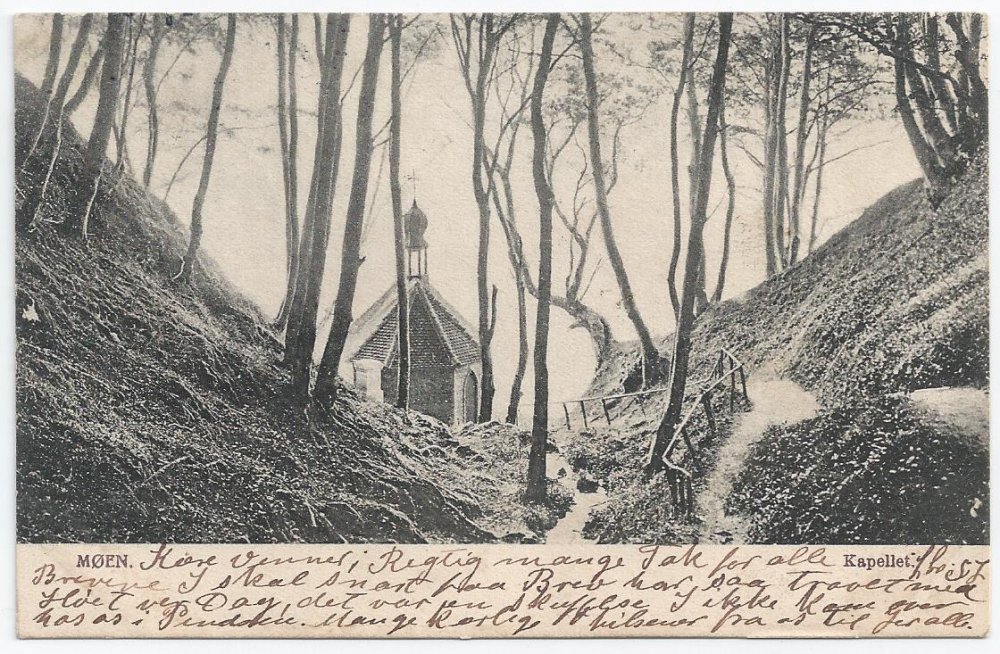 MØEN. Kære Venner, Regtig mange Tak for alle Kapellet.
Brevene I skal snart faa Brev har saa travelt med
Høst ver Dag, det var en skuffelse I ikke Kom over
hos os i Pindsen. Mange Kærlige Hilsener fra os til jer all.